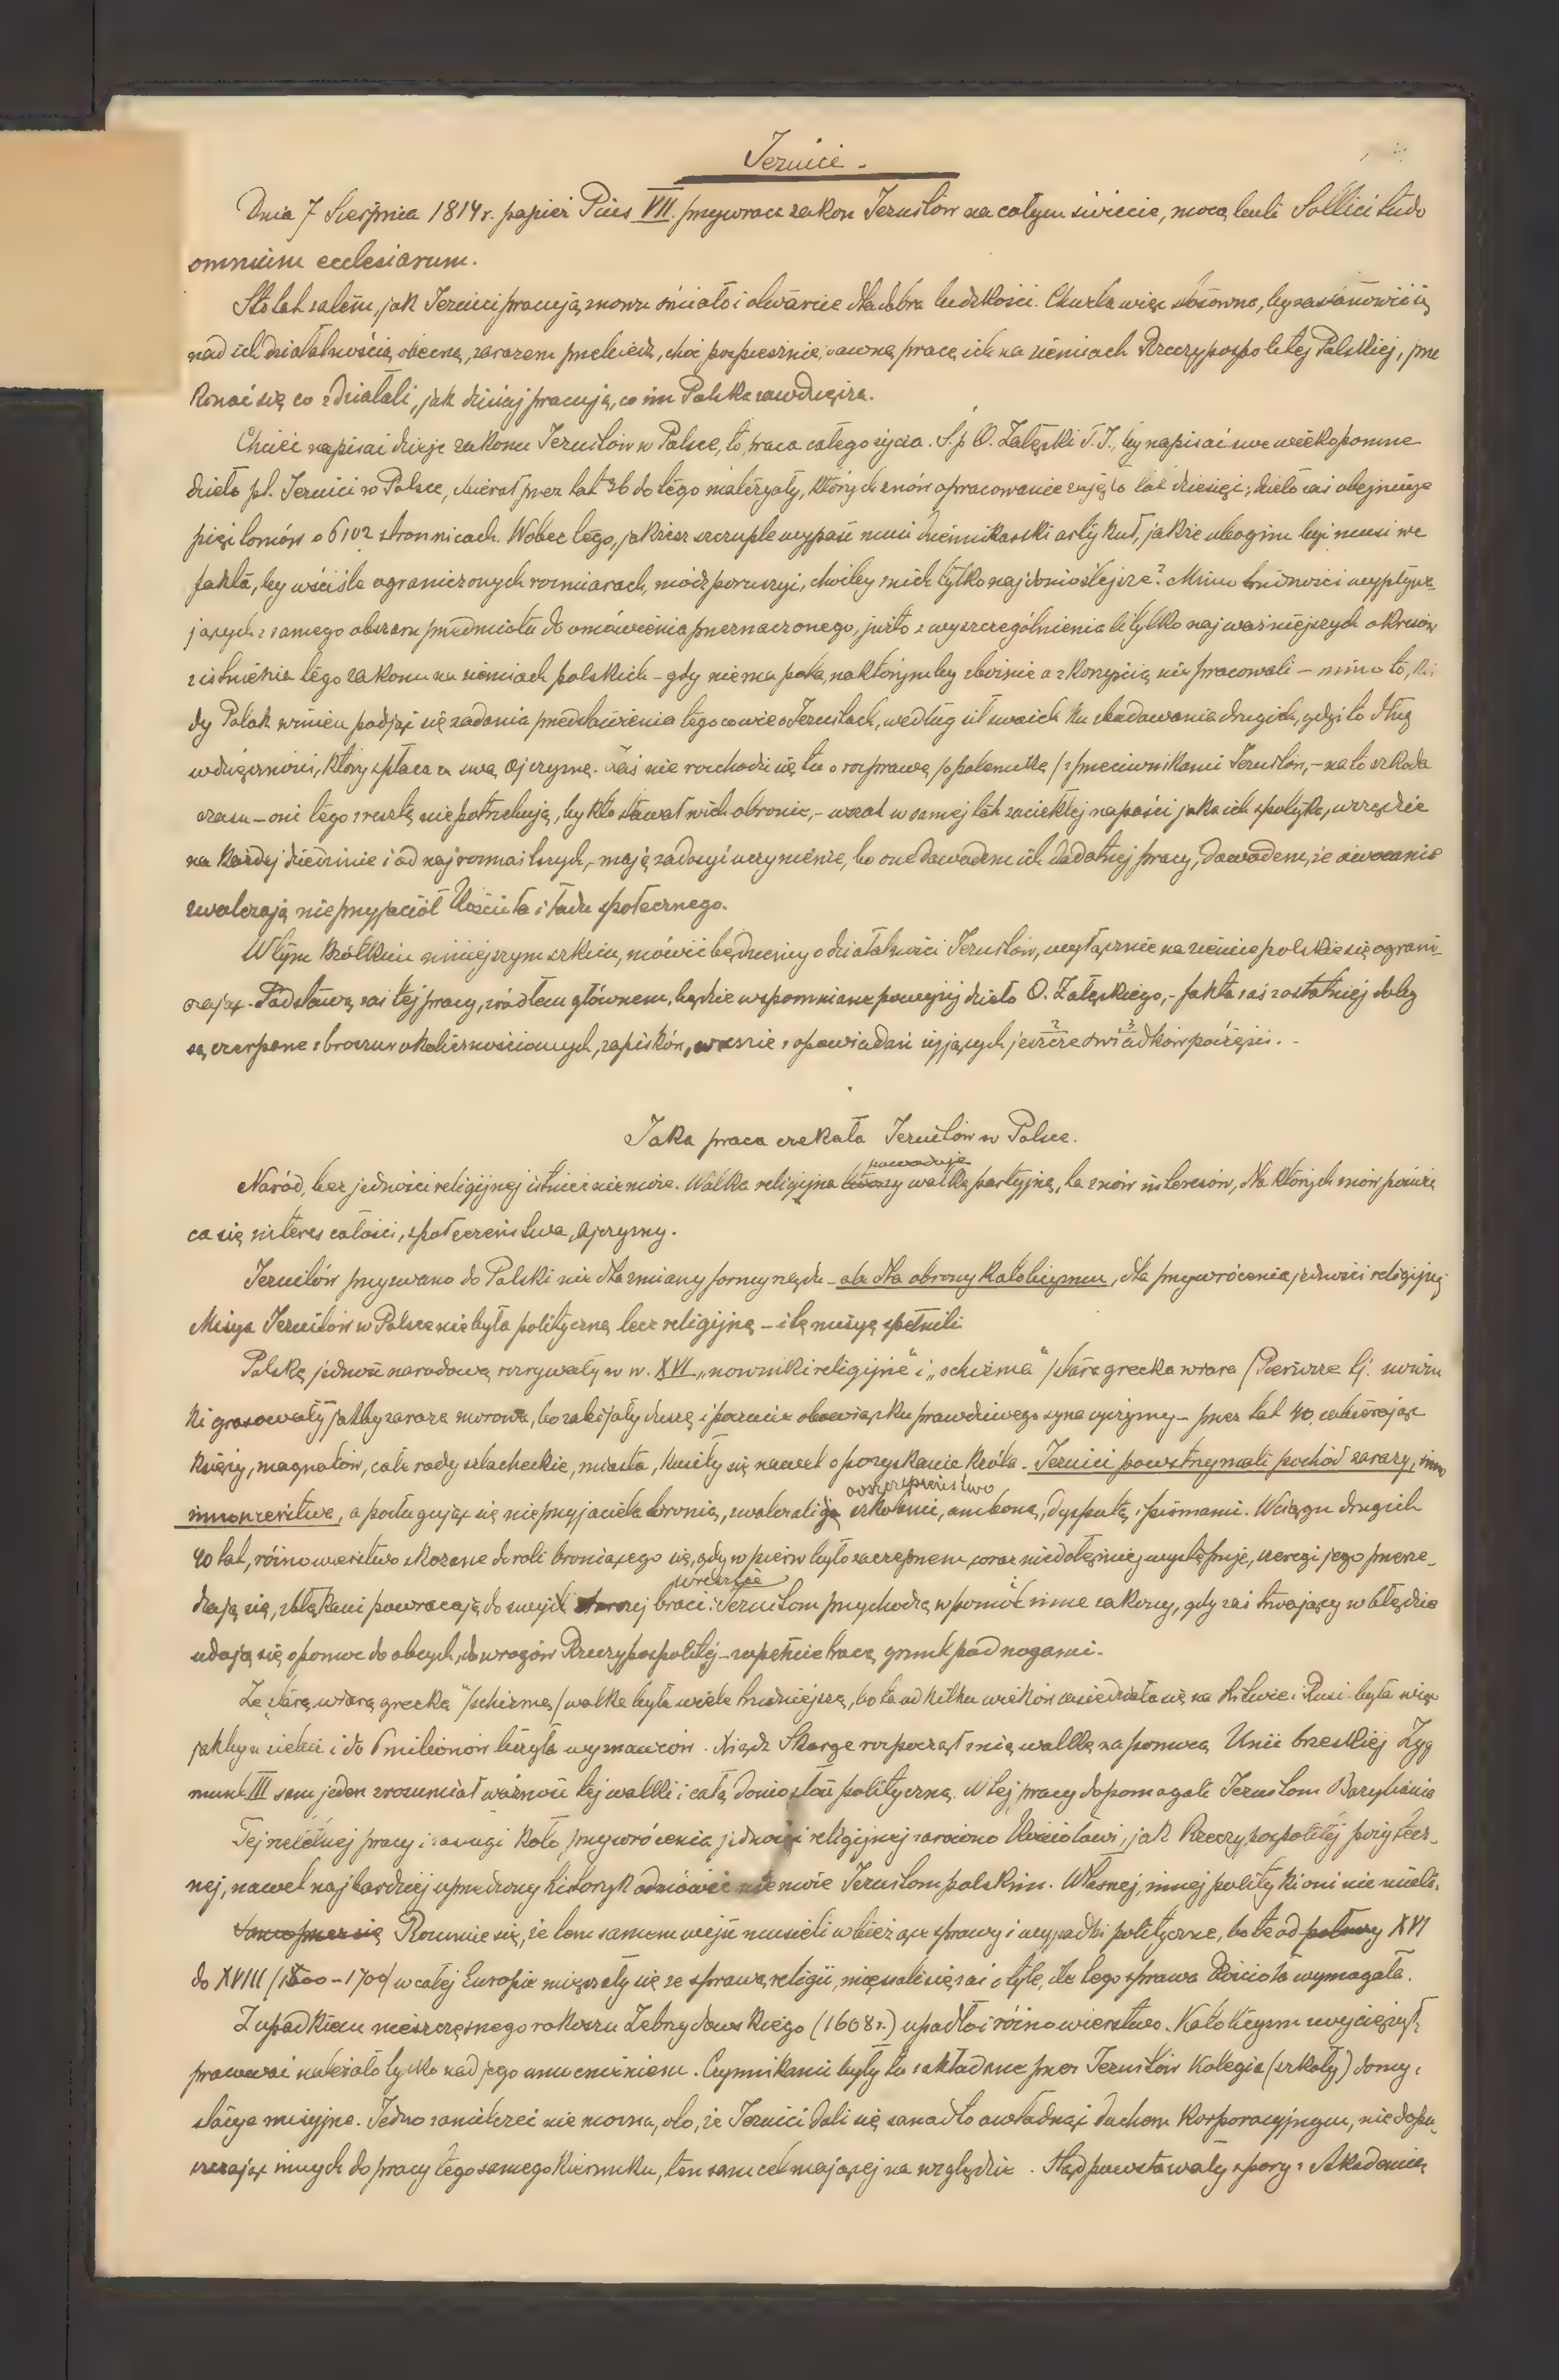 Jezuici.
Dnia 7 Sierpnia 1814 r. papież Pius VII. przywraca zakon Jezuitów na całym świecie, mocą bulli Sollicitudo
omnium ecclesiarum.
Sto lat zatem, jak Jezuici pracują znowu śmiało i otwarcie dla dobra ludzkości. Chwila więc stosowna, by zastanowić się
nad ich działalnością obecną, zarazem przebiedz, choć pospiesznie, dawną pracę ich na ziemiach Rzeczypospolitej Polskiej, prze
konać się co zdziałali, jak dzisiaj pracują, co im Polska zawdzięcza.
Chcieć napisać dzieje zakonu Jezuitów w Polsce, to praca całego życia. Ś.p. O. Załęski T. J., by napisać swe wiekopomne
dzieło pt. Jezuici w Polsce, zbierał przez lat 26 do tego materyały, których znów opracowanie zajęło lat dziesięć; dzieło zaś obejmuje
pięć tomów o 6102 stronnicach. Wobec tego, jakżesz szczuple wypaść musi dziennikarski artykuł, jakże ubogim być musi we
fakta, by w ściśle ograniczonych rozmiarach, módz poruszyć, choćby z nich tylko najdonioślejsze? Mimo trudności wypływa-
jących z samego obszaru przedmiotu do omówienia przeznaczonego, już to z wyszczególnienia li tylko najważniejszych okresów
z istnienia tego zakonu na ziemiach polskich – gdy niema pola, na którymby zbożnie a z korzyścią nie pracowali – mimo to, każ
dy Polak winien podjąć się zadania przedstawienia tego co wie o Jezuitach, według sił swoich ku zbudowaniu drugich, gdyż to dług
wdzięczności, który spłaca za swą ojczyznę. Zaś nie rozchodzi się tu o rozprawę /o polemikę/ z przeciwnikami Jezuitów, – na to szkoda
czasu – oni tego zresztą nie potrzebują, by kto stawał w ich obronie, – wszak w samej tak zaciekłej napaści jaka ich spotyka, wszędzie
na każdej dziedzinie i od najrozmaitszych, – mają zadosyć uczynienie, bo one dowodem ich dodatniej pracy, dowodem, że owocanie
zwalczają nieprzyjaciół Kościoła i ładu społecznego.
W tym krótkim niniejszym szkicu, mówić będziemy o działalności Jezuitów, wyłącznie na ziemie polskie się ograni-
czając. Podstawą zaś tej pracy, źródłem głównem, będzie wspomniane powyżej dzieło O. Załęskiego, – fakta zaś z ostatniej doby
są czerpane z broszur okolicznościowych, zapisków, wreszcie z opowiadań żyjących jeszcze świadków poczęści. –
Jaka praca czekała Jezuitów w Polsce.
powoduje
Naród, bez jedności religijnej istnieć nie może. Walka religijna tworzy walkę partyjną, ta znów interesów, dla których znów poświę
ca się interes całości, społeczeństwa, ojczyzny.
Jezuitów przyzwano do Polski nie dla zmiany formy rządu – ale dla obrony katolicyzmu, dla przywrócenia jedności religijnej
Misya Jezuitów w Polsce nie była polityczną lecz religijną – i tę misyę spełnili
Polską jedność narodową rozrywały w w. XVI „nowinki religijne" i „schizma" /stara grecka wiara/ Pierwsze tj. nowin
ki grasowały jakby zaraza morowa, bo zabijały duszę i poczucie obowiązku prawdziwego syna ojczyzny – przez lat 40, zabierając
księży, magnatów, całe rody szlacheckie, miasta, kusiły się nawet o pozyskanie króla. Jezuici powstrzymali pochód zarazy,
innowierstwa, a posługując się nieprzyjaciela bronią, zwalczali ją szkołami, amboną, dysputą i pismami. W ciągu drugich
40 lat, różnowierstwo skazane do roli broniącego się, gdy wpierw było zaczepnem, coraz niedołężniej występuje, szeregi jego przerze-
dzają się, zbłąkani powracają do swych starszej braci: Jezuitom przychodzą w pomoc inne zakony, gdy zaś trwający w błędzie
wreszcie
udają się o pomoc do obcych, do wrogów Rzeczypospolitej – zupełnie tracą grunt pod nogami.
Ze „starą wiarą grecką" /schizmą/ walka była wiele trudniejszą, bo ta od kilku wieków zasiedziała się na Litwie i Rusi była więc
jakby u siebie i do 6 milionów liczyła wyznawców. Ksiądz Skarga rozpoczął z nią walkę za pomocą Unii brzeskiej Zyg
munt III sam jeden zrozumiał ważność tej walki i całą doniosłość polityczną. W tej pracy dopomagali Jezuitom Bazylianie
Tej rzetelnej pracy i zasługi koło przywrócenia jedności religijnej zarówno Kościołowi, jak Rzeczypospolitej pożytecz-
nej, nawet najbardziej uprzedzony historyk odmówić nie może Jezuitom polskim. Własnej, innej polityki oni nie mieli.
Samo przez się Rozumie się, że tem samem wejść musieli w bieżące sprawy i wypadki polityczne, bo te od połowy XVI
do XVIII /1500–1700/ w całej Europie mięszały się ze sprawą religii, mięszali się zaś o tyle, ile tego sprawa Kościoła wymagała.
Z upadkiem nieszczęsnego rokoszu Zebrzydowskiego (1608 r.) upadło i różnowierstwo. Katolicyzm zwyciężył,
pracować należało tylko nad jego umocnieniem. Czynnikami były tu zakładane przez Jezuitów Kolegia (szkoły) domy i
stacye misyjne. Jedno zamilczeć nie można, oto, że Jezuici dali się zanadto owładnąć duchem korporacyjnym, nie dopu-
szczając innych do pracy tego samego kierunku, ten sam cel mającej na względzie. Stąd powstawały spory z Akademią